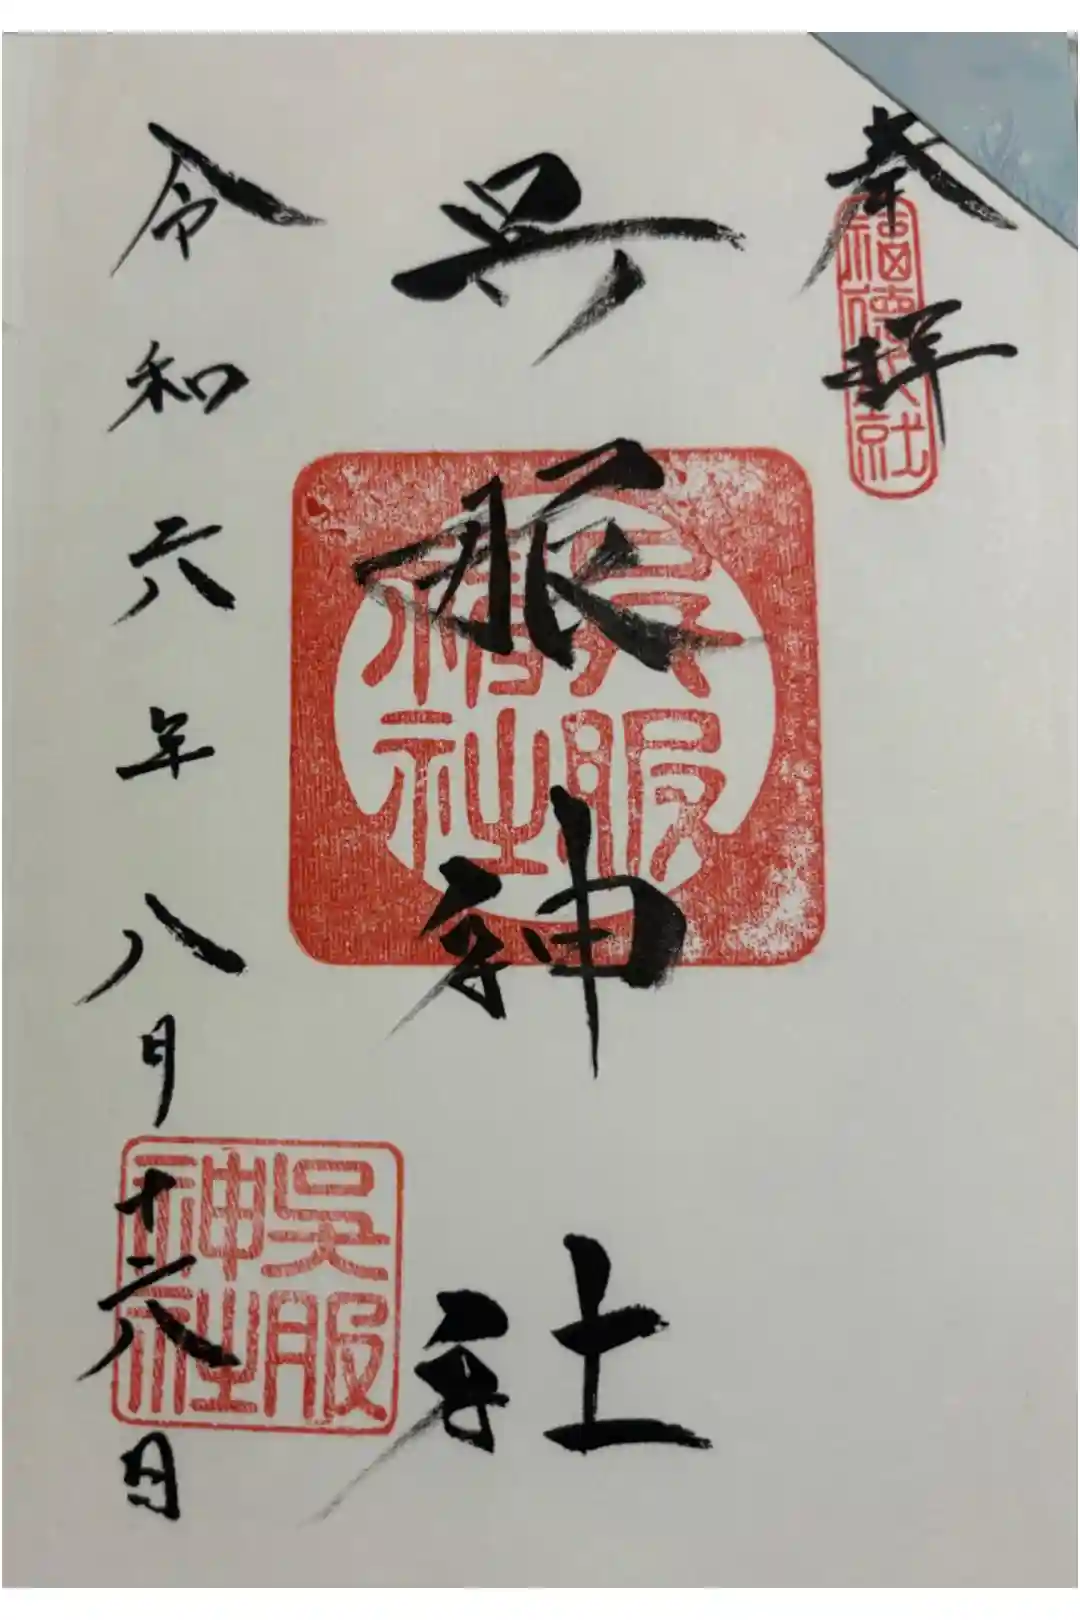 奉拝
福徳神社
呉服神社
呉服神社
令和六年八月十六日
呉服神社